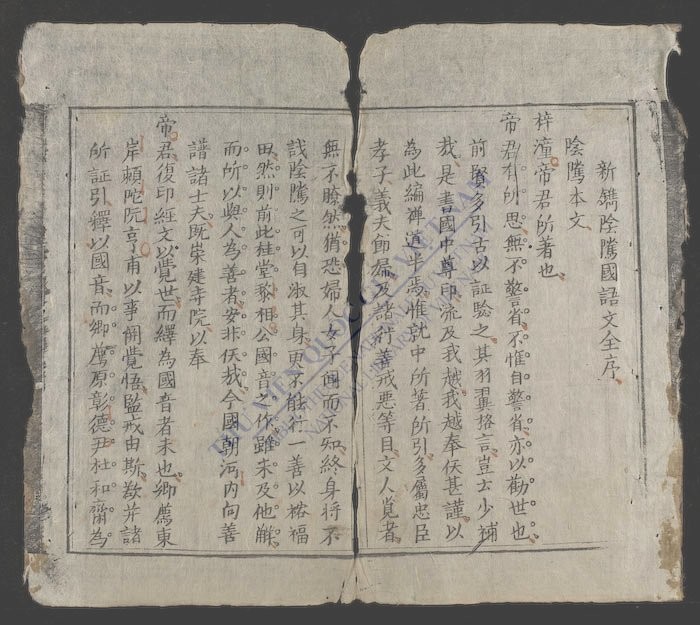 新鐫陰隲國語文全序
陰隲本文
梓潼帝君所著也
帝君有所思無不警省不惟自警省亦以勸世也
前賢多引古以証驗之其羽翼格言豈士少補
哉是書國中尊印流及我越我越奉佚甚謹以
為此編禅道半焉惟就中所著所引多屬忠臣
孝子義夫節婦及諸行善戒悪等目文人覧者
無不瞭然猶恐婦人女子聞而不知終身将不
識陰隲之可以自淑其身更不能行一善以裕福
田然則前此桂堂黎相公國音之作雖未及他觧
而所以與人為善者安非佚哉今國朝河内向善
譜諸士夫既崇建寺院以奉
帝君復印經文以覺世而繹為國音者未也鄉薦東
岸頼陀阮亨甫以事開覺悟監戒由斯歘并諸
所証引釋以國音而鄉薦原彰德尹杜和齋為
THƯ VIỆN QUỐC GIA VIỆT NAM